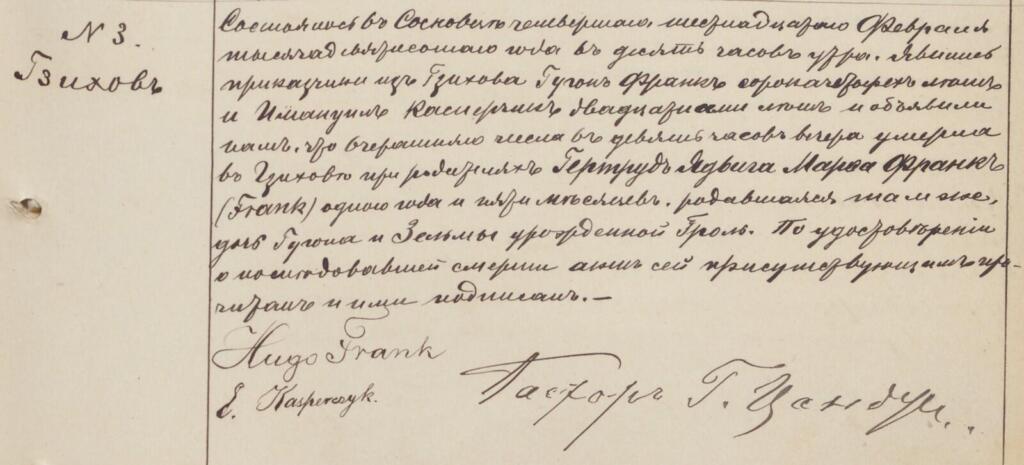 N 3.
Гзиховъ
Состоялось въ Сосновцѣ четвертаго, шестнадцатаго Февраля
тысяча девятисотаго года въ десять часовъ утра. Явились
приказчики изъ Гзихова Гугонъ Франкъ сорока четырехъ лѣтъ
и Имануилъ Касперчикъ двадцати лѣтъ и объявили
намъ, что вчерашняго числа въ девять часовъ вечера умерла
въ Гзиховѣ при родителяхъ Гертрудъ Ядвига Марѳа Франкъ
(Frank) одного года и пяти мѣсяцевъ, родившаяся тамже,
дочь Гугона и Зельмы урожденной Гроль. По удостовѣреніи
о послѣдовавшей смерти актъ сей присутствующимъ про-
читанъ и ими подписанъ. —
Hugo Frank
E. Kasperczyk.
Пасторъ Г.